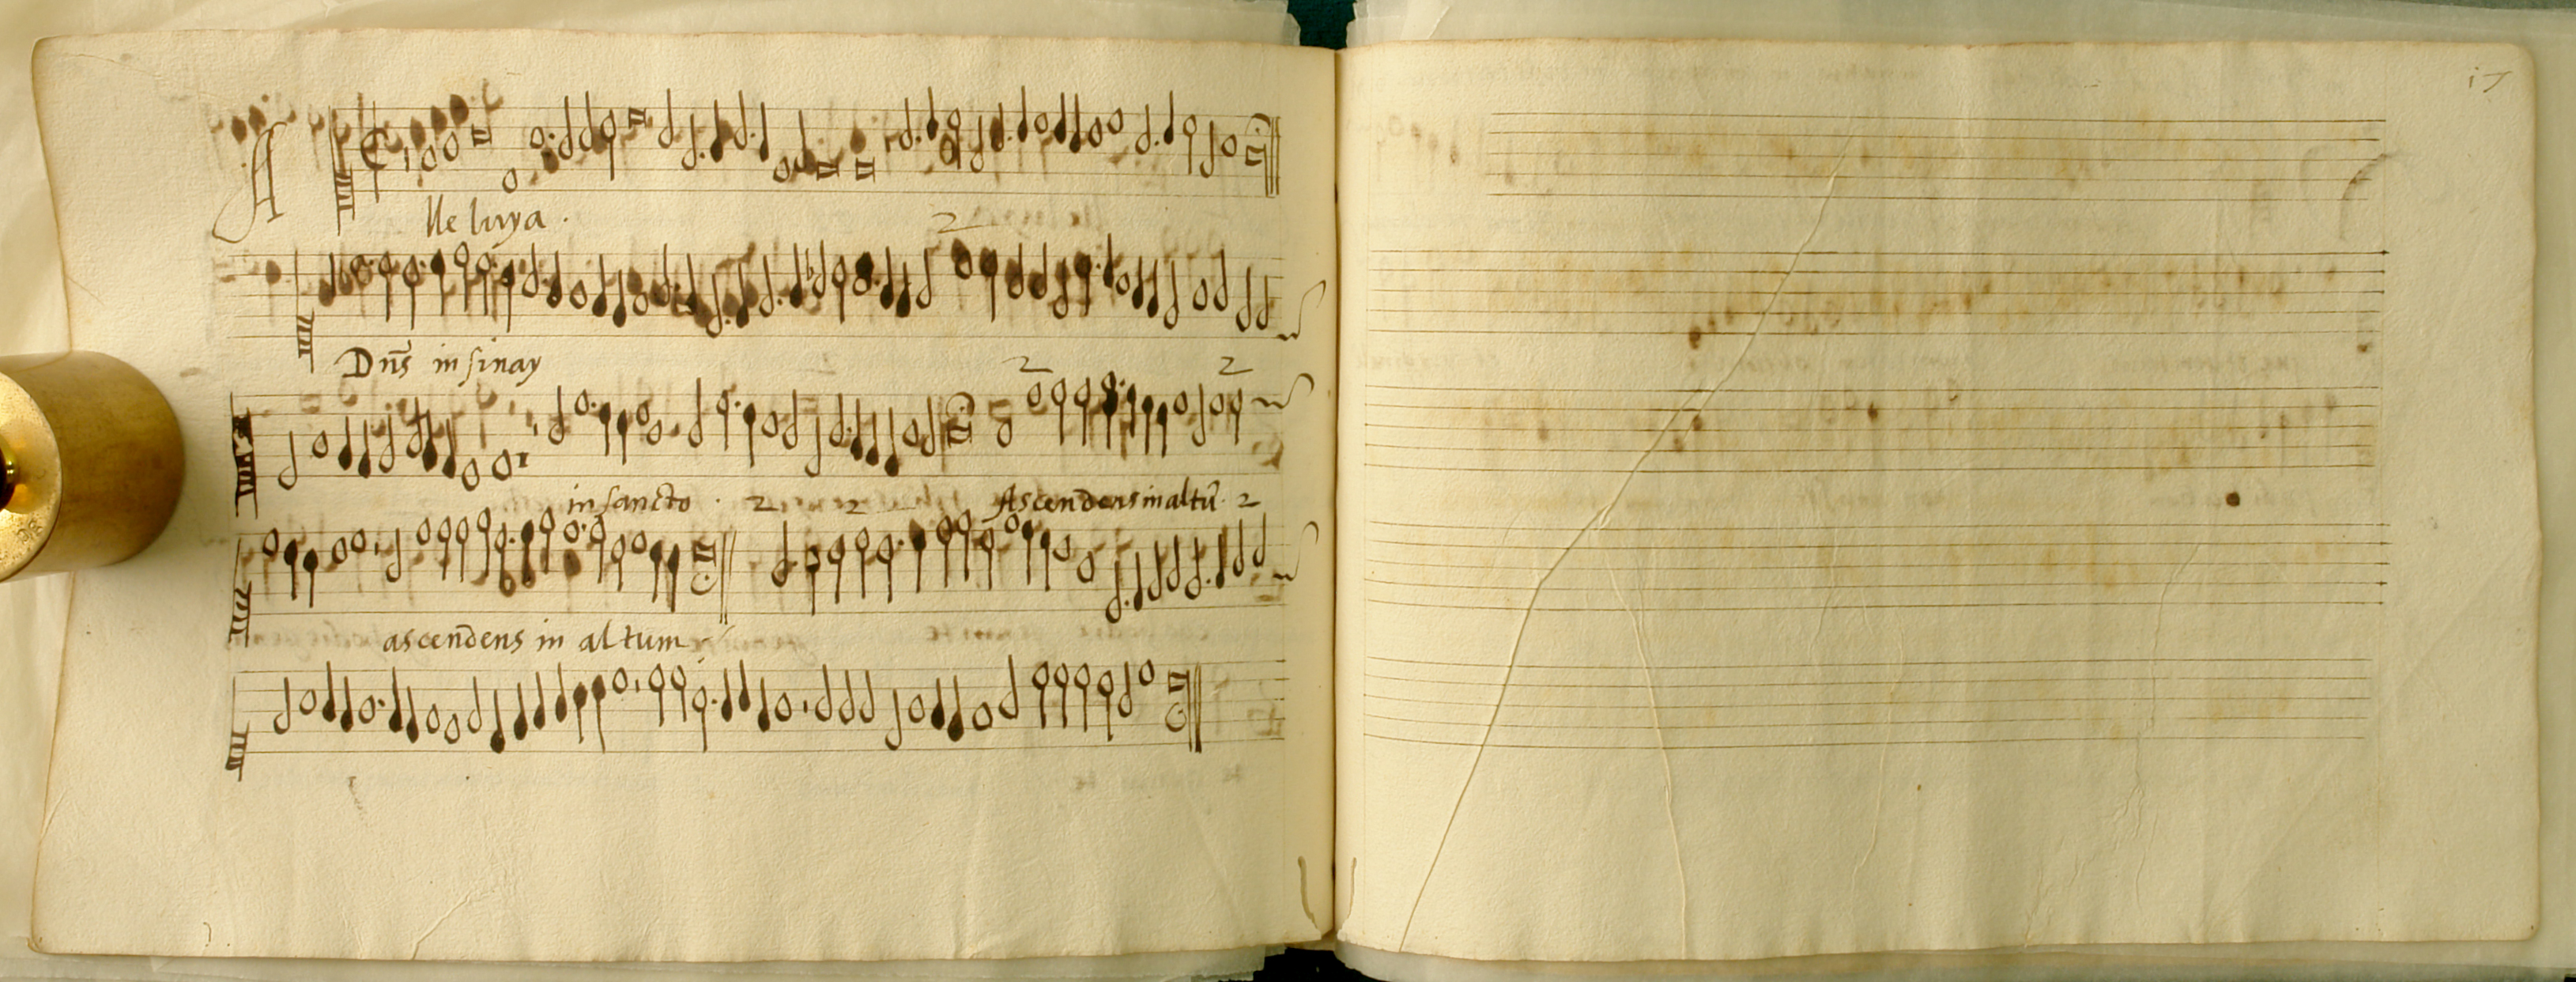 A
lle luya .
2
Dn̄s in sinay
2 2
in sancto . 2 2 Ascendens in altū . 2
ascendens in altum
17